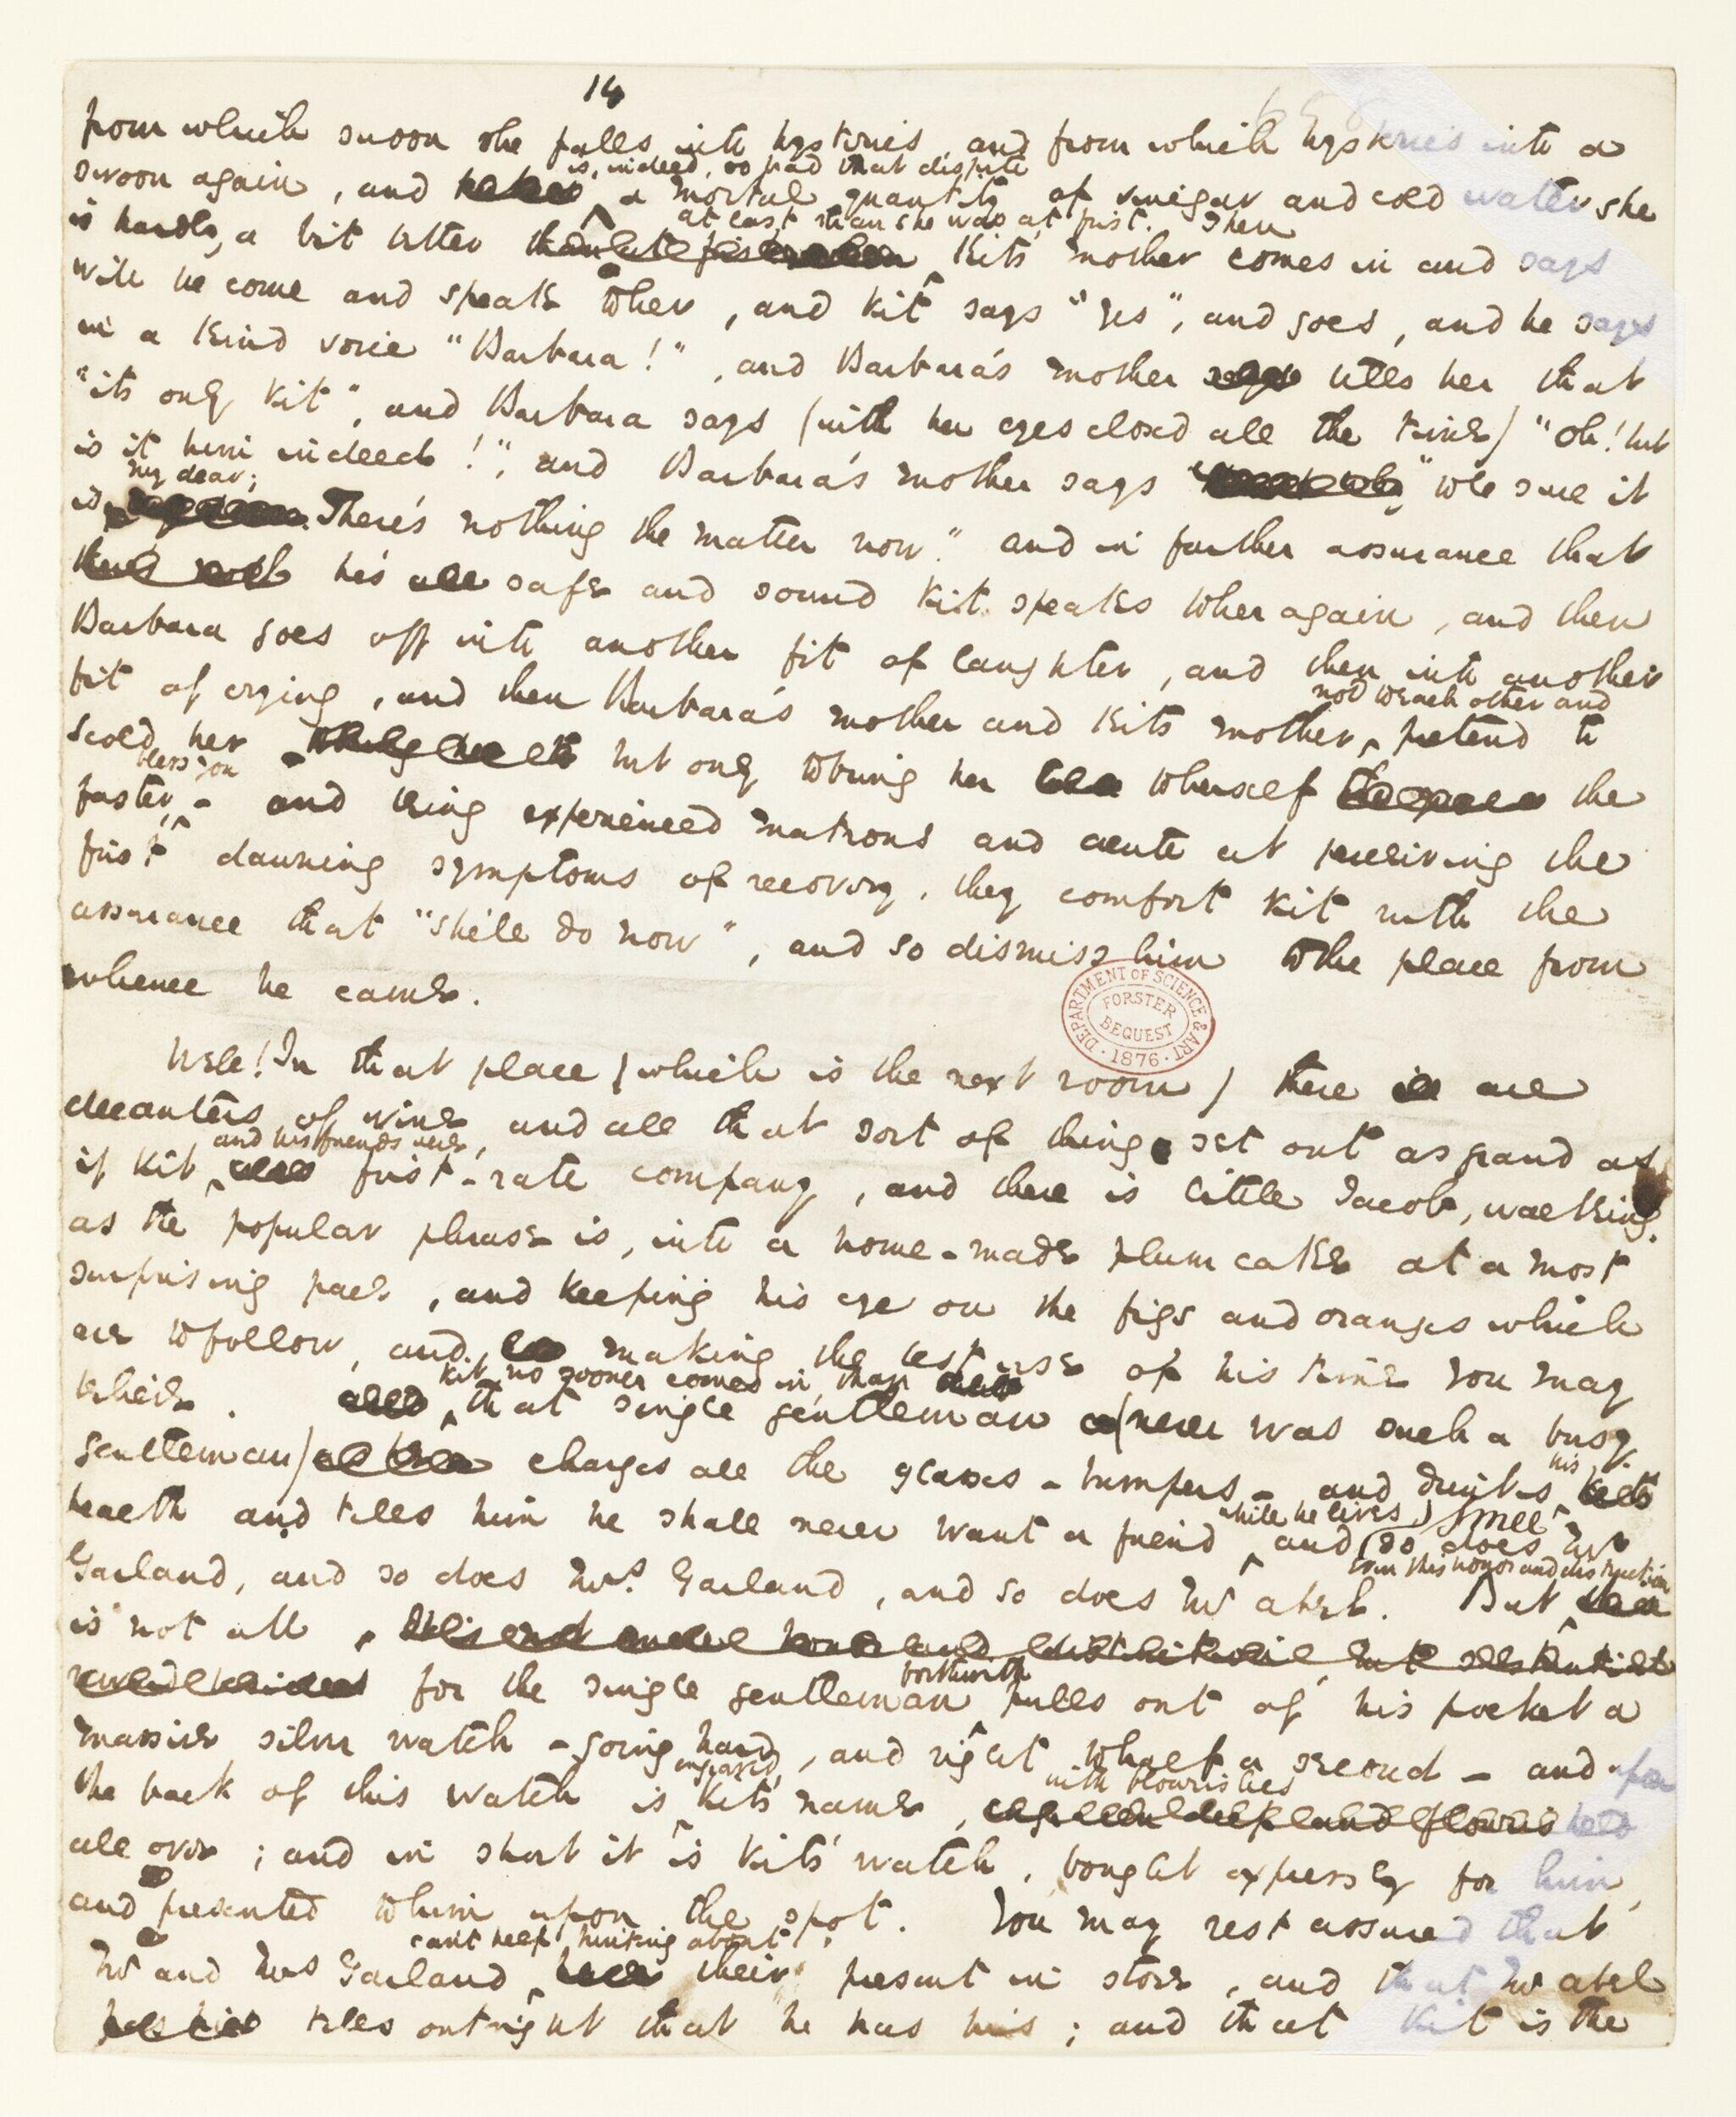 14
from which swoon she falls into hysterics, and from which hysterics into a
is, indeed, so bad that despite
swoon again, and a mortal quantity of vinegar and cold water she
at last than she was at first. Then
is hardly a bit better Kit's mother comes in and says
will he come and speak to her, and Kit says "Yes", and goes, and he says
in a kind voice "Barbara!", and Barbara's mother tells her that
"its only Kit", and Barbara says (with her eyes closed all the time) "Oh! but
is it him indeed!", and Barbara's mother says "To be sure it
my dear;
is, There's nothing the matter now." and in further assurance that
he's all safe and sound Kit speaks to her again, and then
Barbara goes off into another fit of laughter, and then into another
fit of crying, and then Barbara's mother and Kits mother, pretend to
nod to each other and
scold her - but only to bring her to herself the
bless you
faster, - and being experienced matrons and acute at perceiving the
first dawning symptoms of recovery, they comfort Kit with the
assurance that "she'll do now", and so dismiss him to the place from
whence he came.
DEPARTMENT OF SCIENCE & ART
FORSTER
BEQUEST
1876
Well! In that place (which is the next room) there are
decanters of wine, and all that sort of thing set out as grand as
and his friends were,
if Kit first-rate company, and there is little Jacob, walking,
as the popular phrase is, into a home-made plum cake at a most
surprising pace, and keeping his eye on the figs and oranges which
are to follow, and making the best use of his time you may
Kit no sooner comes in, than
believe. that single gentleman (never was such a busy
gentleman) charges all the glasses - bumpers - and drinks
his
health and tells him he shall never want a friend, and so does Mr
while he lives,
Garland, and so does Mrs. Garland, and so does Mr Abel. But
even this honor and distinction
is not all,
for the single gentleman pulls out of his pocket a
forthwith
massive silver watch - going hard, and right to half a second - and upon
engraved
the back of this watch is Kit's name,
with flourishes
all over; and in short it is Kit's watch, bought expressly for him,
and presented to him upon the spot. You may rest assured that
can't help hinting about
Mr and Mrs Garland, their present in store, and that Mr Abel
tells outright that he has his; and that Kit is the